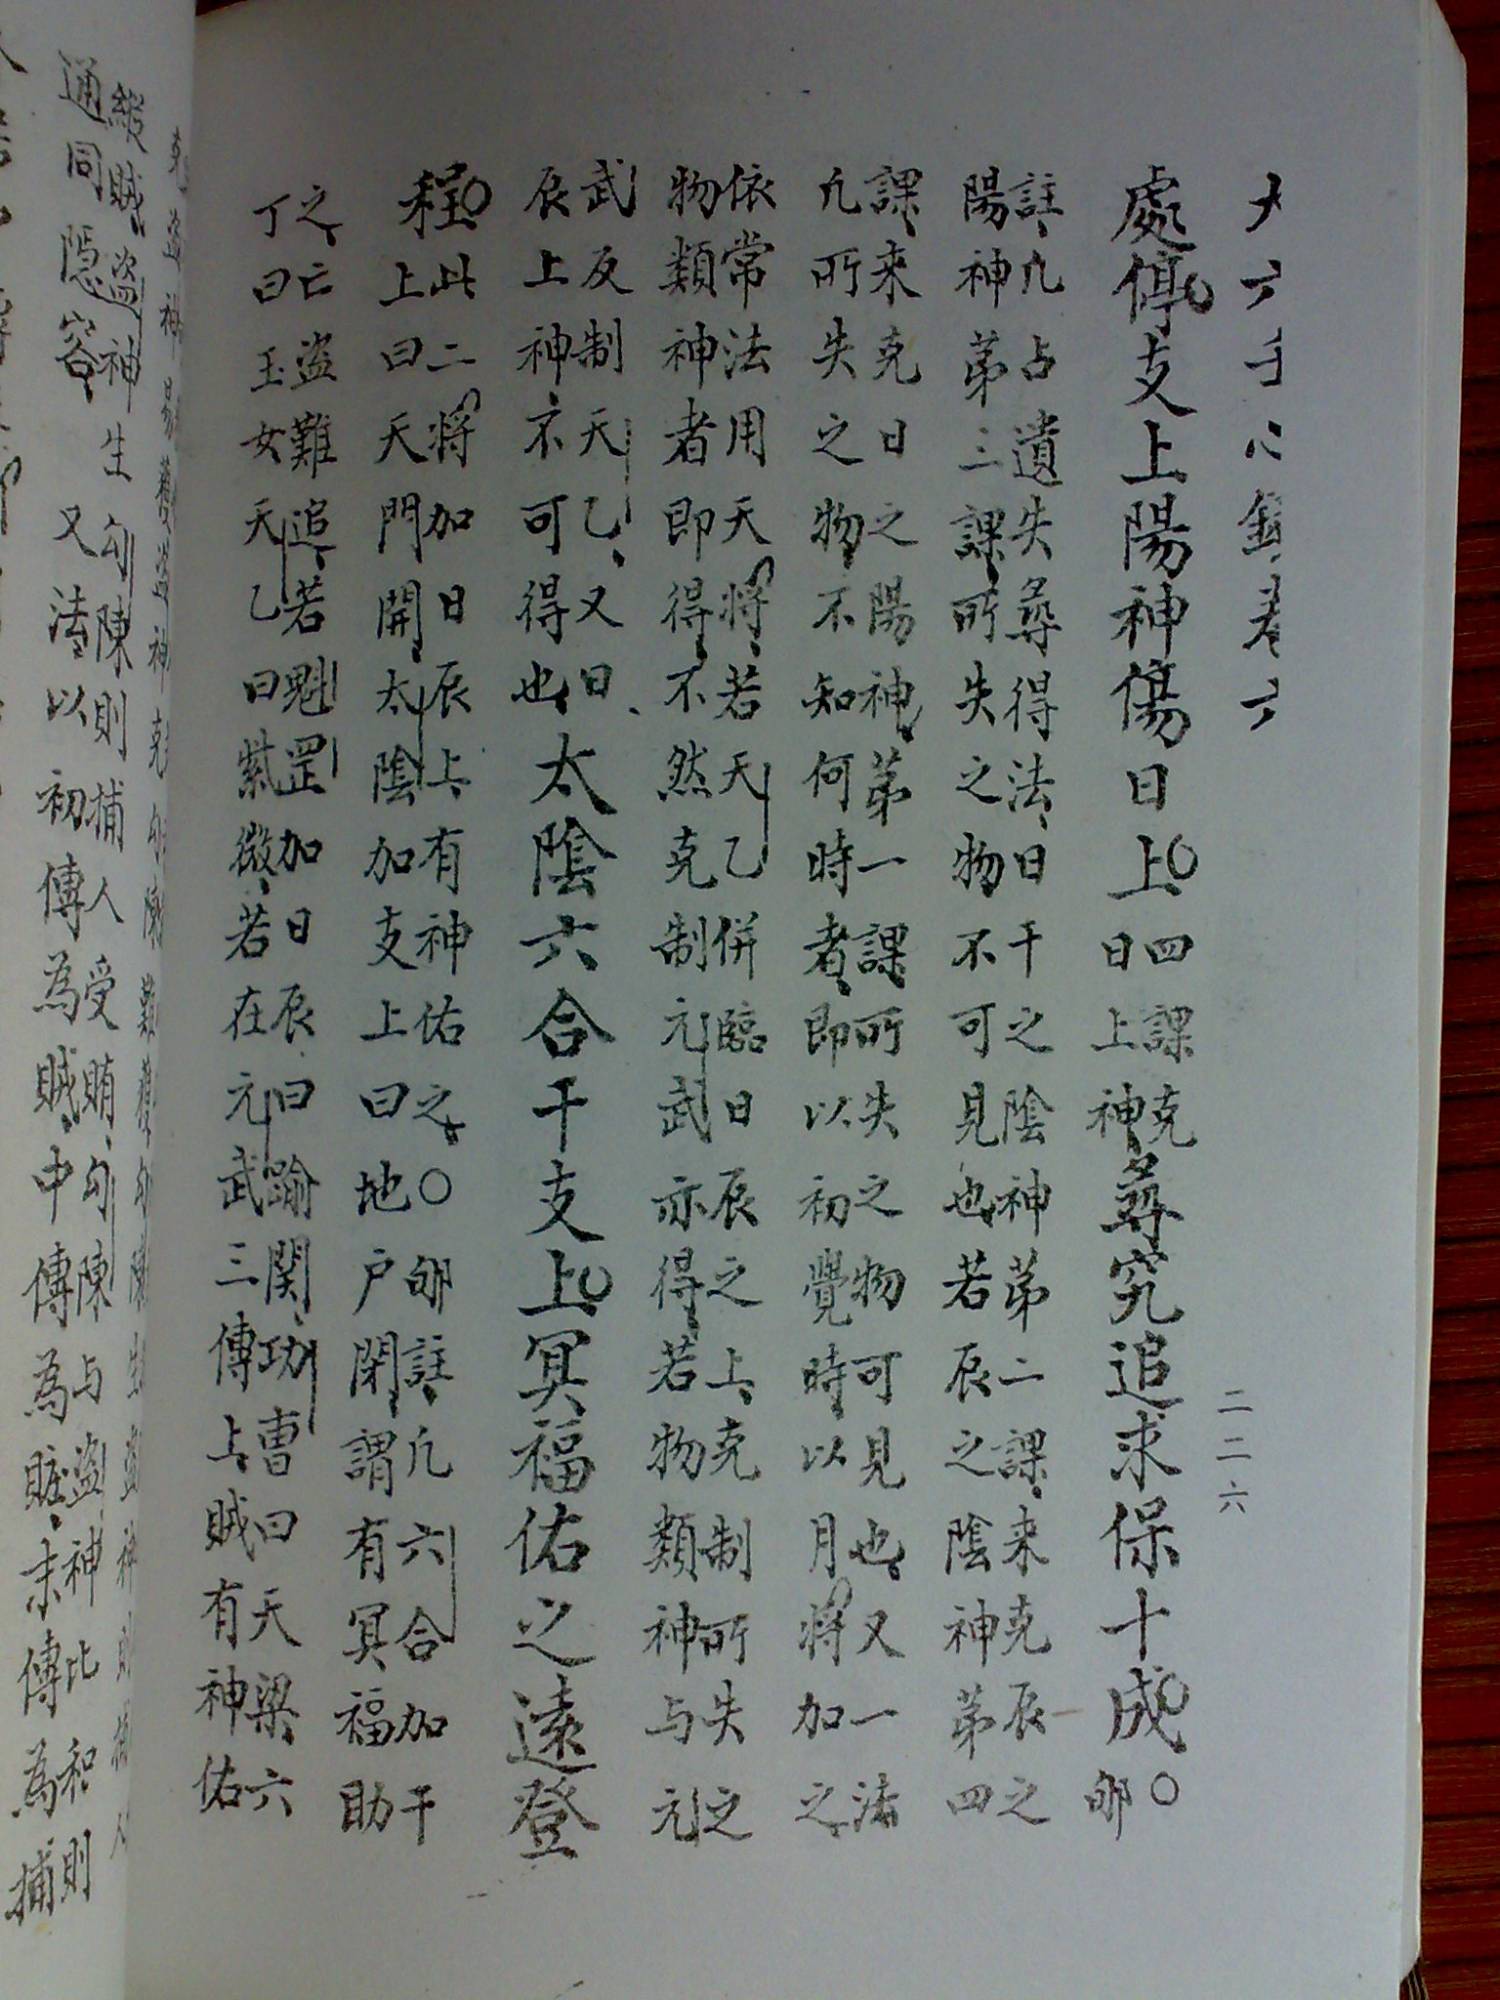 大六壬心鏡卷六
二二六
處停支上陽神傷日上四課克
日上神尋究追求保十成〇邮
註凡占遺失尋得法日干之陰神第二課来克辰之
陽神第三課所失之物不可見也若辰之陰神第四
課来克日之陽神第一課所失之物可見也又一法
凡所失之物不知何時者即以初覺時以月將加之
依常法用天將若天乙併臨日辰之上克制所失之
物類神者即得不然克制元武亦得若物類神与元
武反制天乙又曰
辰上神不可得也太陰六合干支上冥福佑之遠登
程此二將加日辰上有神佑之〇邮註凡六合加干
上曰天門開太陰加支上曰地户閉謂有冥福助
之亡盗難追若魁罡加日辰曰踰関功曹曰天梁六
丁曰玉女天乙曰紫微若在元武三傳上賊有神佑
縱賊盗神生勾陳則捕人受賄勾陳与盗神比和則
通同隠容又法以初傳為賊中傳為賍末傳為捕